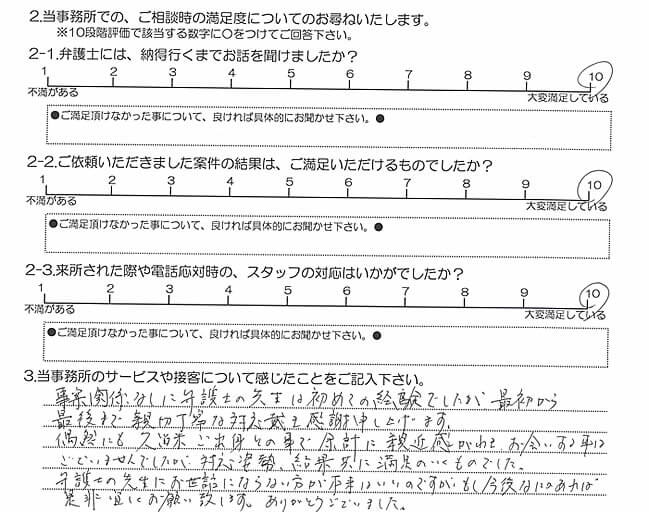 2.当事務所での、ご相談時の満足度についてのお尋ねいたします。
※10段階評価で該当する数字に○をつけてご回答下さい。
2-1.弁護士には、納得行くまでお話を聞けましたか？
1 2 3 4 5 6 7 8 9 10
不満がある 大変満足している
●ご満足頂けなかった事について、良ければ具体的にお聞かせ下さい。●
2-2.ご依頼いただきました案件の結果は、ご満足いただけるものでしたか？
1 2 3 4 5 6 7 8 9 10
不満がある 大変満足している
●ご満足頂けなかった事について、良ければ具体的にお聞かせ下さい。●
2-3.来所された際や電話応対時の、スタッフの対応はいかがでしたか？
1 2 3 4 5 6 7 8 9 10
不満がある 大変満足している
●ご満足頂けなかった事について、良ければ具体的にお聞かせ下さい。●
3.当事務所のサービスや接客について感じたことをご記入下さい。
関係なしに弁護士の先生は初めての経験でしたが 最初から
最後まで 親切丁寧な対応誠に感謝申し上げます。
偶然にも 久留米ご出身との事で 余計に 親近感がわき お会いする事は
ございませんでしたが 対応姿勢、結果共に 満足のいくものでした。
弁護士の先生にお世話にならない方が 本来はいいのですが、もし今後なにかあれば
是非 宜しくお願い致します。ありがとうございました。